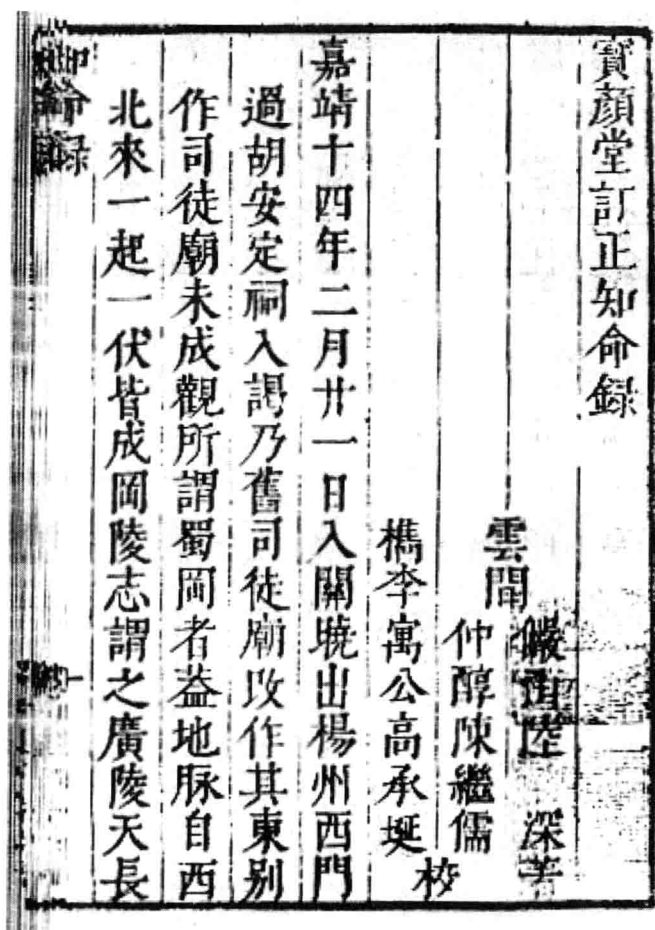 寳顏堂訂正知命録
雲間
儼山陸 深著
仲醇陳繼儒
檇李寓公高承埏
校
嘉靖十四年二月廿一日入關曉出楊州西門
過胡安定祠入謁乃舊司徒廟改作其東别
作司徒廟未成觀所謂蜀岡者葢地脉自西
北來一起一伏皆成岡陵志謂之廣陵天長
知命録
一